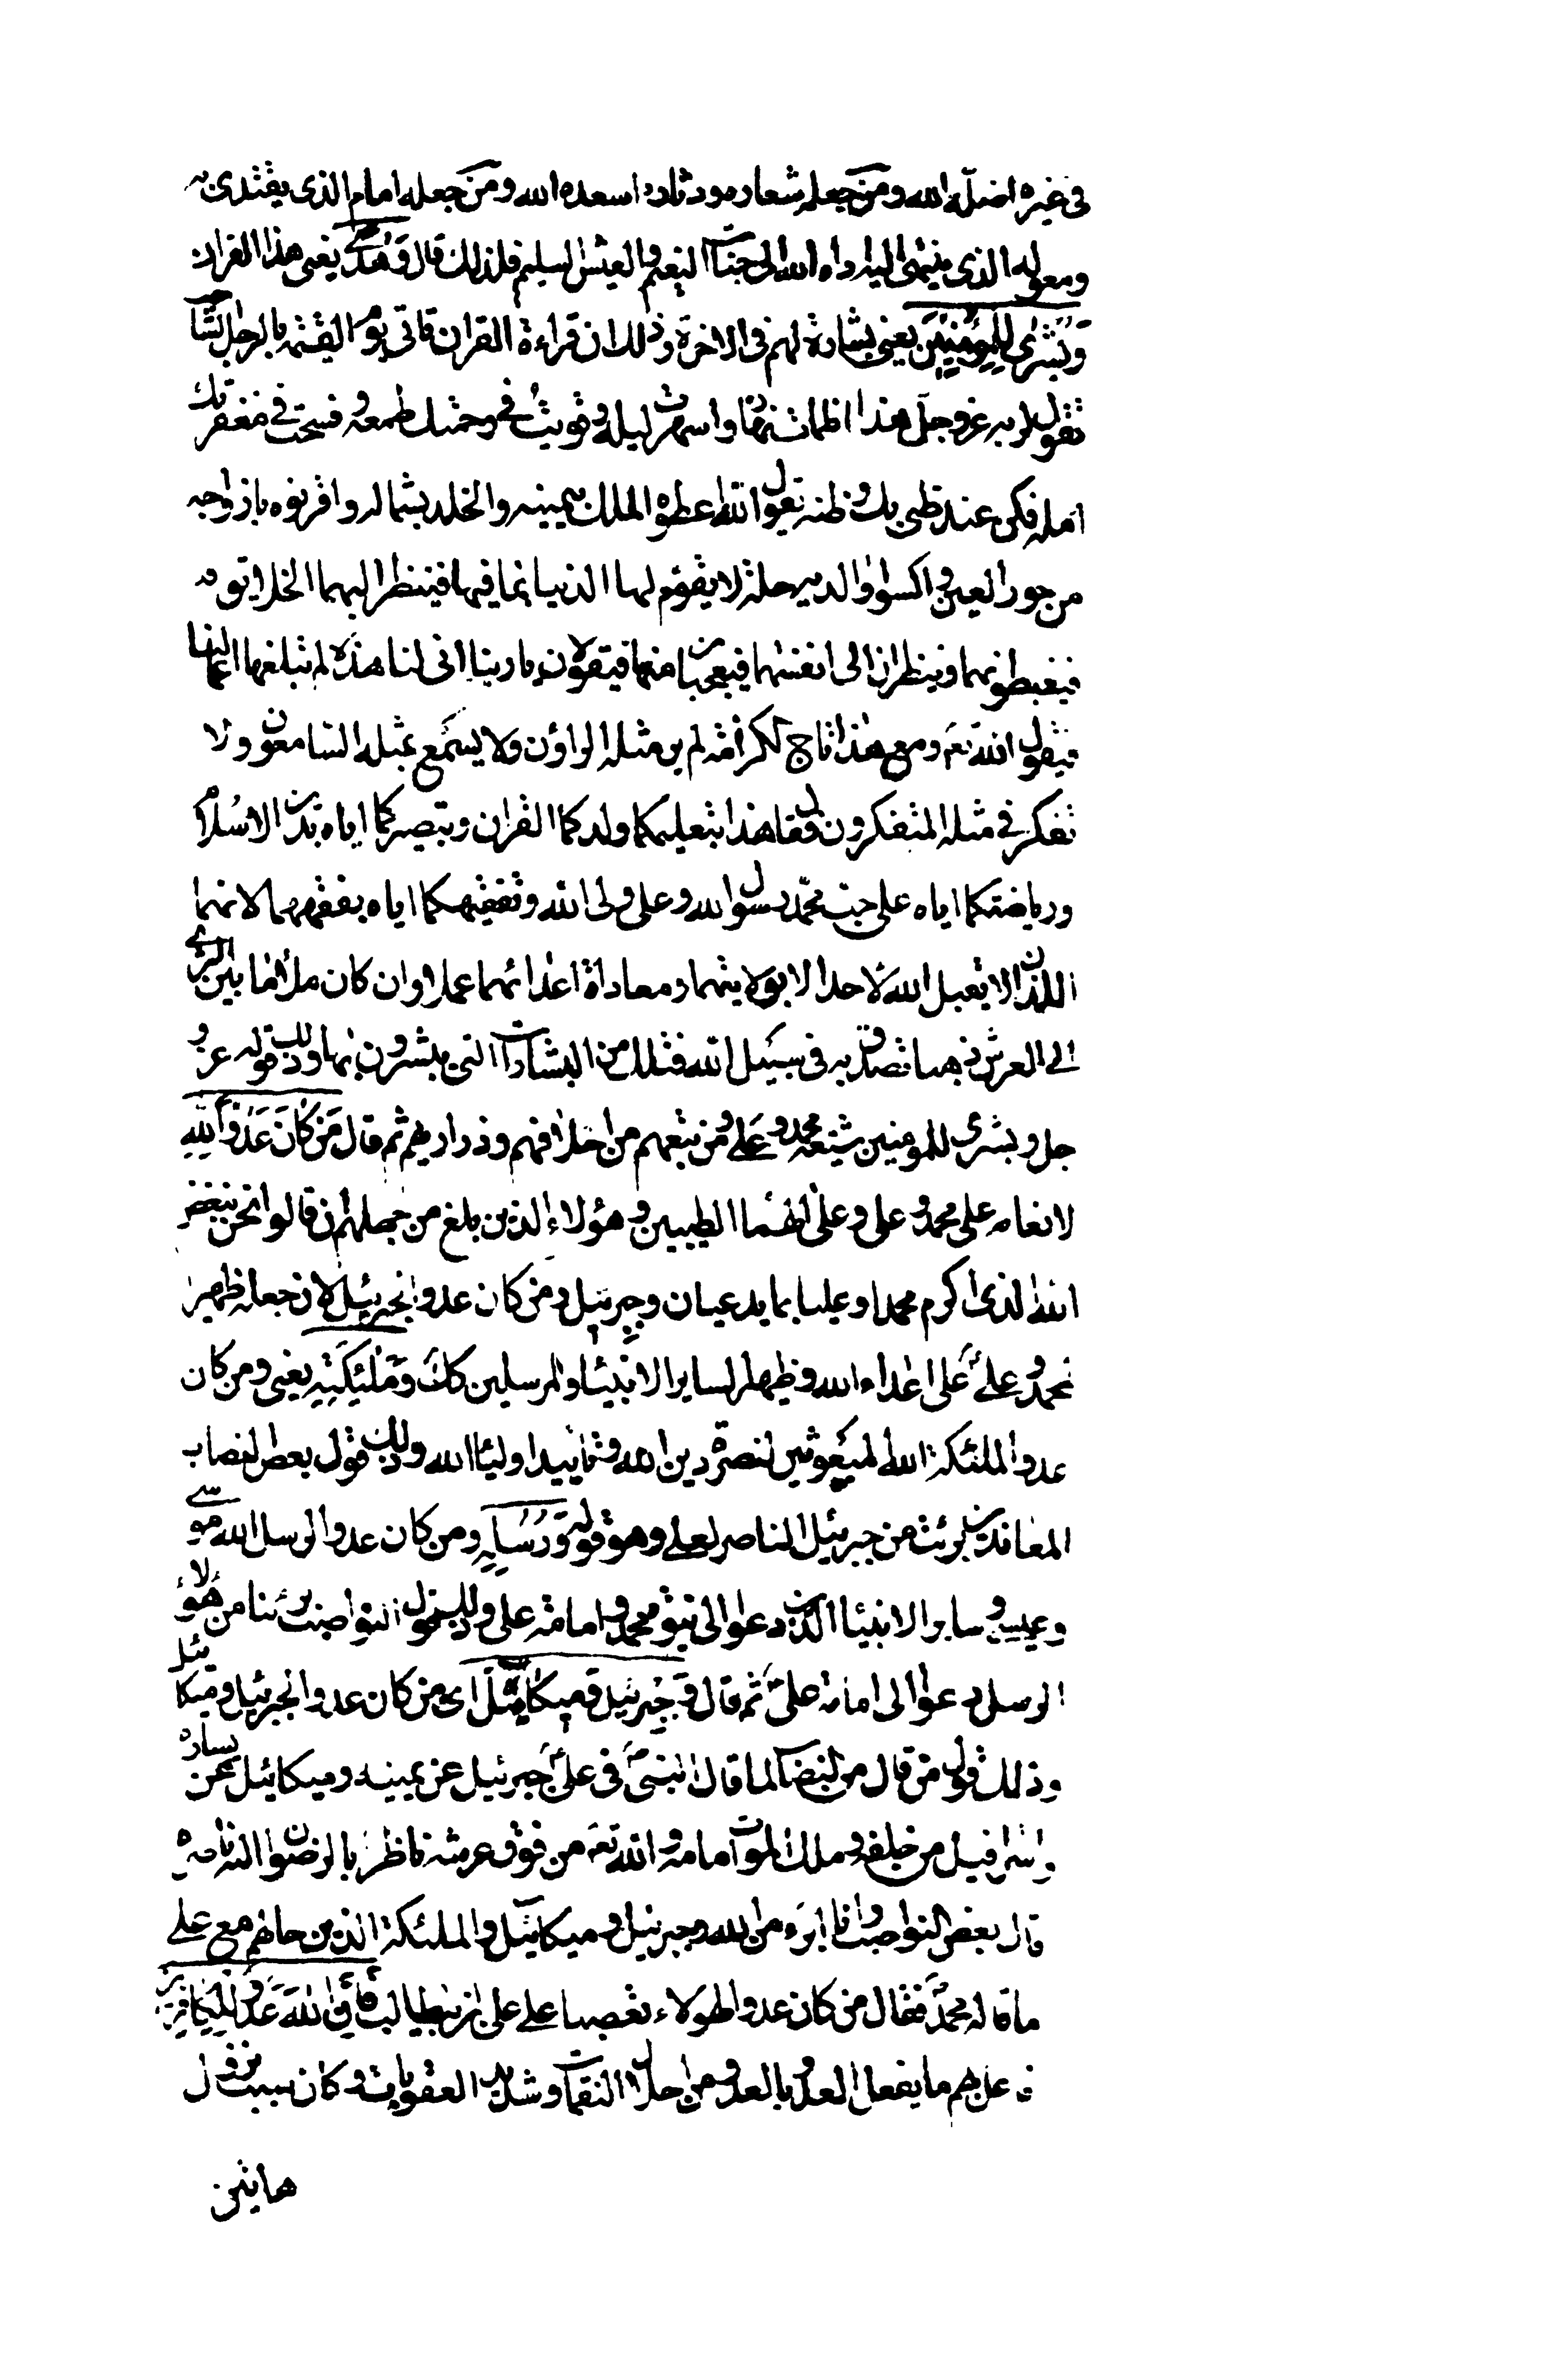 في غيره اضله الله ومن جعله شعاره ودثاره اسعده الله ومن جعله امامه الذي يقتدى به
ومعوله الذي ينتهى اليه اداه الله الى جنات النعيم والعيش السليم فلذلك قال وَهُدًى يعنى هذا القران
وَبُشْرٰى لِلْمُؤْمِنِينَ يعنى بشارة لهم في الاخرة وذلك ان قراءة القران تاتي يوم القيٰمة بالرجل الشاب
تقول لربه عز وجل هذا اظمات نهاره واسهرت ليله وقويت في رحمتك طمعه وفسحت في مغفرتك
امله فكن عند ظني بك وظنه يقول الله اعطوه الملك بيمينه والخلد بشماله واقرنوه بازواجه
من حور العين واكسوا والديه حلة لا يقوم لها الدنيا بما فيها فينظر اليهما الخلايق
فيغبطونهما وينظران الى انفسهما فيعجبان منها فيقولان يا ربنا انى لنا هذه لم تبلغها اعمالنا
فيقول الله تع ومع هذا تاج الكرامة لم ير مثله الراؤن ولا يسمع بمثله السامعون ولا
تفكر في مثله المتفكرون فيقال هذا بتعليمكما ولدكما القران وتبصيركما اياه بدين الاسلام
ورياضتكما اياه على حب محمد رسول الله وعلي ولي الله وتفقيهكما اياه بفقههما لانهما
اللذان لا يقبل الله لاحد الا بولايتهما ومعاداة اعدائهما عملا وان كان ملأ ما بين الثرى
الى العرش ذهبا تصدق به في سبيل الله فتلك من البشارات التي يبشرون بها وذلك قوله عز و
جل وبشرى للمومنين شيعة محمد وعلي ومن تبعهم من اخلافهم وذراريهم ثم قال مَنْ كَانَ عَدُوًّا لِلّٰهِ
لانعامه على محمد وعلي وعلى الهما الطيبين وهؤلاء الذين بلغ من جهلهم ان قالوا نحن نبغض
الله الذي اكرم محمدا وعليا بما يدعيان وجبريل ومن كان عدوا لجبرئيل لان جعله ظهيرا
لمحمد وعلي ع على اعداء الله وظهيرا لساير الانبياء والمرسلين كذلك وَمَلٰئِكَتِهِ يعنى ومن كان
عدوا لملئكة الله المبعوثين لنصرة دين الله وتاييد اولياء الله وذلك قول بعض النصاب
المعاندين برئت من جبرئيل الناصر لعلي وهو قوله وَرُسُلِهِ ومن كان عدوا لرسل الله موسى
وعيسى وساير الانبياء الذين دعوا الى نبوة محمد وامامة علي وذلك قول النواصب برئنا من هؤلاء
الرسل دعوا الى امامة علي ع ثم قال وَجِبْرِئيلَ وَمِيكَائِيلَ اى من كان عدوا لجبرئيل وميكائيل
وذلك قول من قال من النصاب لما قال النبي ص في علي ع جبرئيل عن يمينه وميكائيل عن يساره
واسرافيل من خلفه وملك الموت امامه والله تع من فوق عرشه ناظر بالرضوان اليه ناصره
قال بعض النواصب وانا ابرء من الله وجبرئيل وميكائيل والملئكة الذين حالهم مع علي
ما قاله محمد فقال من كان عدوا لهؤلاء تعصبا على علي بن ابيطالب فَاِنَّ اللّٰهَ عَدُوٌّ لِلْكَافِرِينَ
فاعل بهم ما يفعل العدو بالعدو من احلال النقمات وشديد العقوبات وكان سبب نزول
هاتين